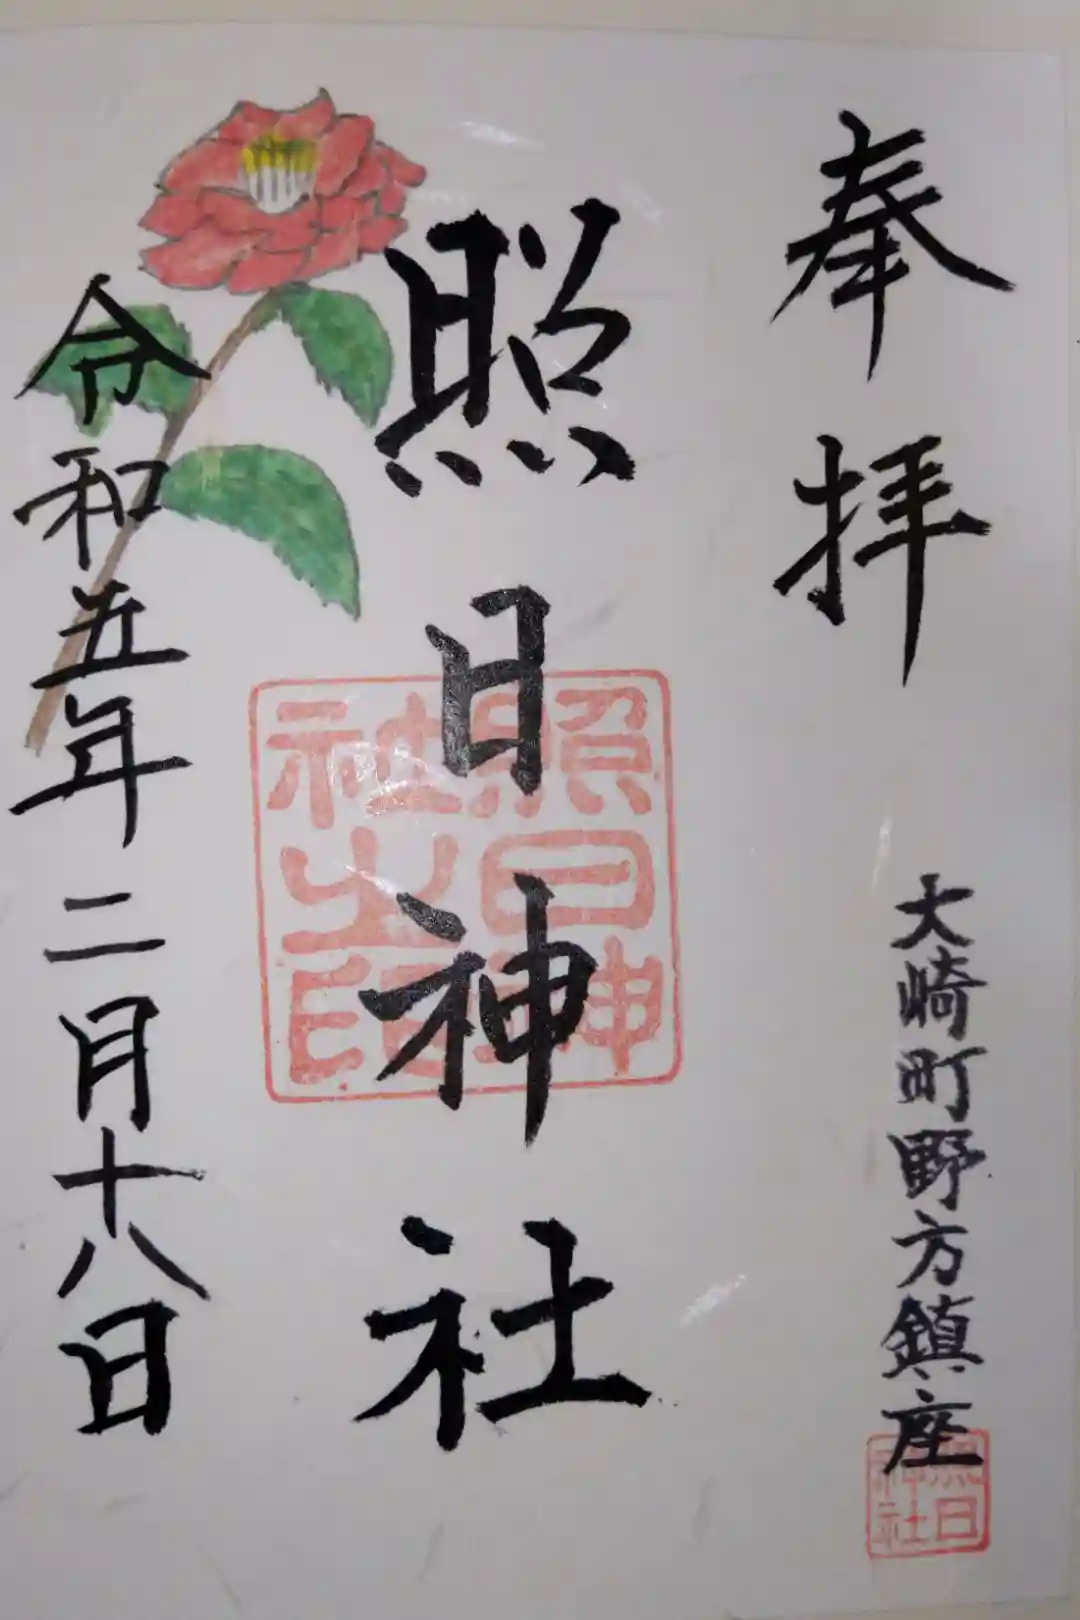 奉拝
大崎町野方鎮座
照日神社
照日神社
照日神社之印
令和五年二月十八日